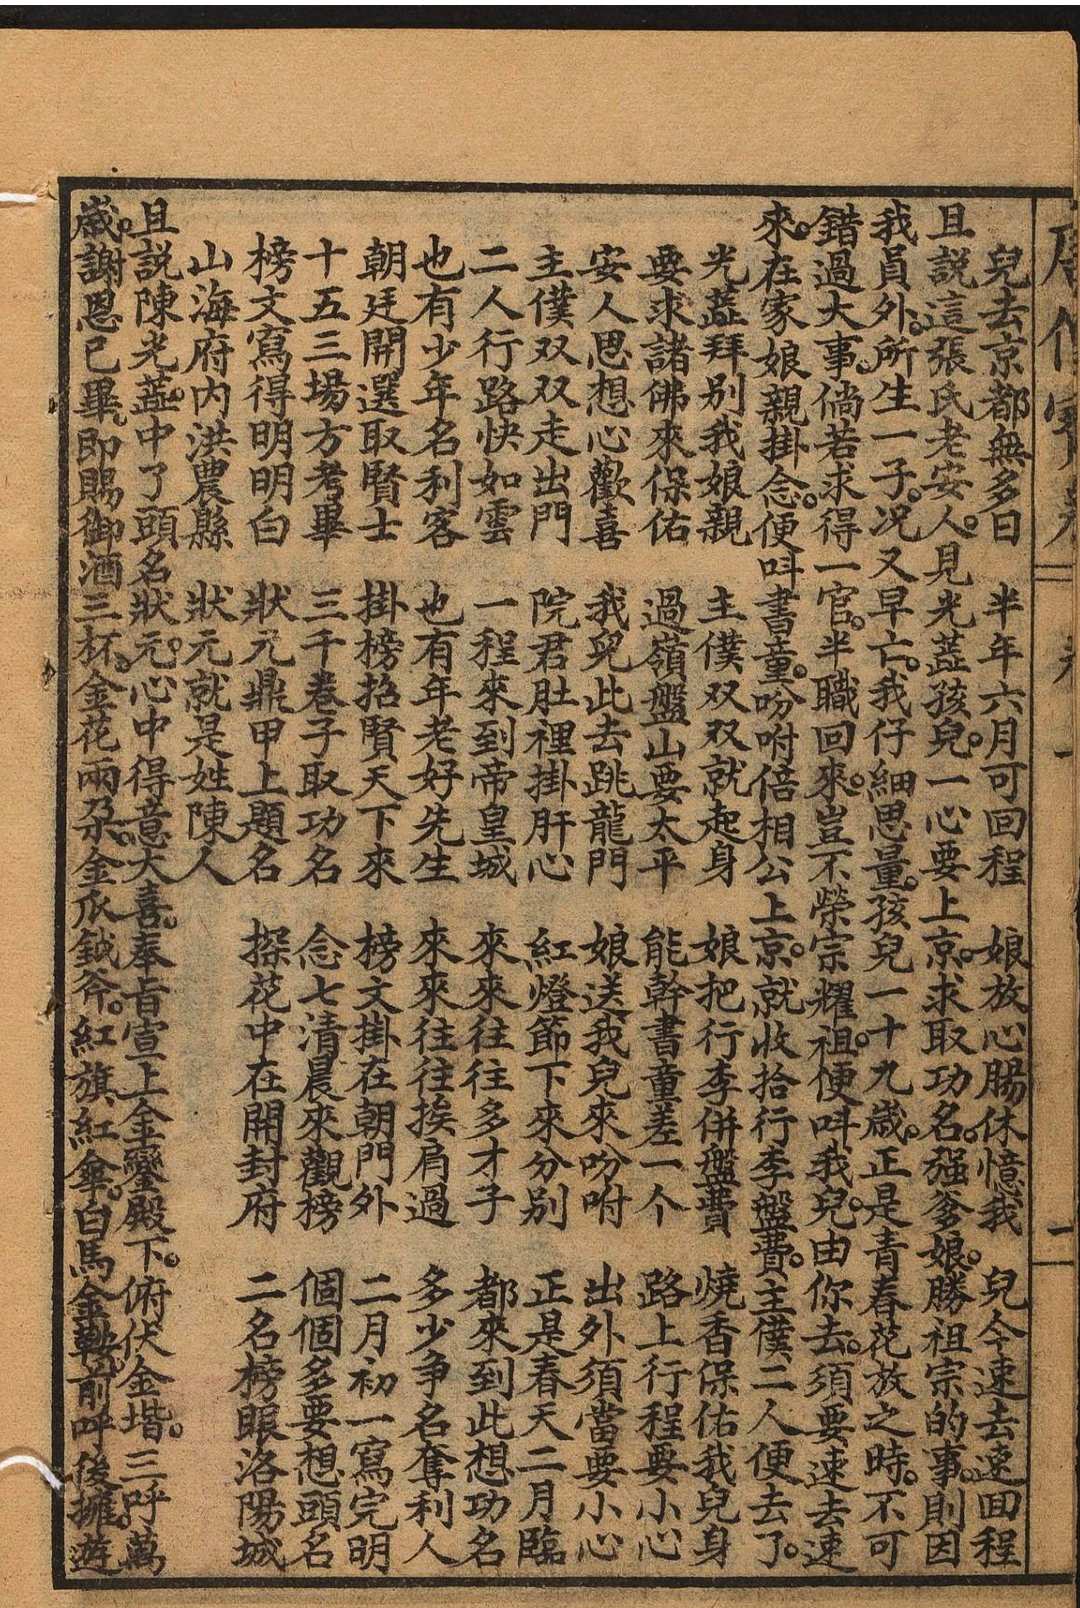 兒去京都無多日　半年六月可回程　娘放心腸休憶我　兒今速去速回程
且説這張氏老安人。見光蕋孩兒。一心要上京。求取功名。强爹娘。勝祖宗的事。則因
我員外。所生一子。况又早亡。我仔細思量。孩兒一十九歲。正是青春花放之時。不可
錯過大事。倘若求得一官。半職回來。豈不榮宗耀祖。便呌我兒。由你去。須要速去速
來。在家娘親掛念。便呌書童。吩咐倍相公上京。就收拾行李盤費。主僕二人便去了。
光蕋拜别我娘親　主僕双双就起身　娘把行李併盤費　燒香保佑我兒身
要求諸佛來保佑　過嶺盤山要太平　能幹書童差一个　路上行程要小心
安人思想心歡喜　我兒此去跳龍門　娘送我兒來吩咐　出外須當要小心
主僕双双走出門　院君肚裡掛肝心　紅燈節下來分别　正是春天二月臨
二人行路快如雲　一程來到帝皇城　來來往往多才子　都來到此想功名
也有少年名利客　也有年老好先生　來來往往挨肩過　多少争名奪利人
朝廷開選取賢士　掛榜招賢天下來　榜文掛在朝門外　二月初一寫完明
十五三場方考畢　三千卷子取功名　念七清晨來觀榜　個個多要想頭名
榜文寫得明明白　狀元鼎甲上題名　探花中在開封府　二名榜眼洛陽城
山海府内洪農縣　狀元就是姓陳人
且説陳光蕋。中了頭名狀元。心中得意大喜。奉旨宣上金鑾殿下。俯伏金堦。三呼萬
歲。謝恩已畢。即賜御酒三杯。金花兩朶。金瓜鉞斧。紅旗紅傘。白馬金鞍。前呼後擁。遊